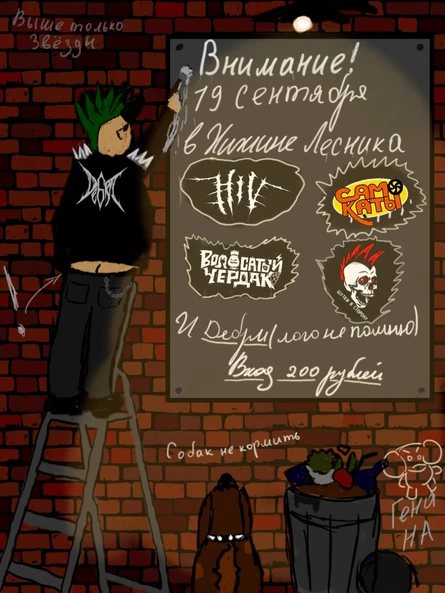 Выше только
Звёзды
Внимание!
19 Сентября
в Хижине Лесника
HIV
САМ
КАТЫ
ВОЛОСАТЫЙ
ЧЕРДАК
И Дебри (лого не помню)
Вход 200 рублей
Собак не кормить
Гена
НА